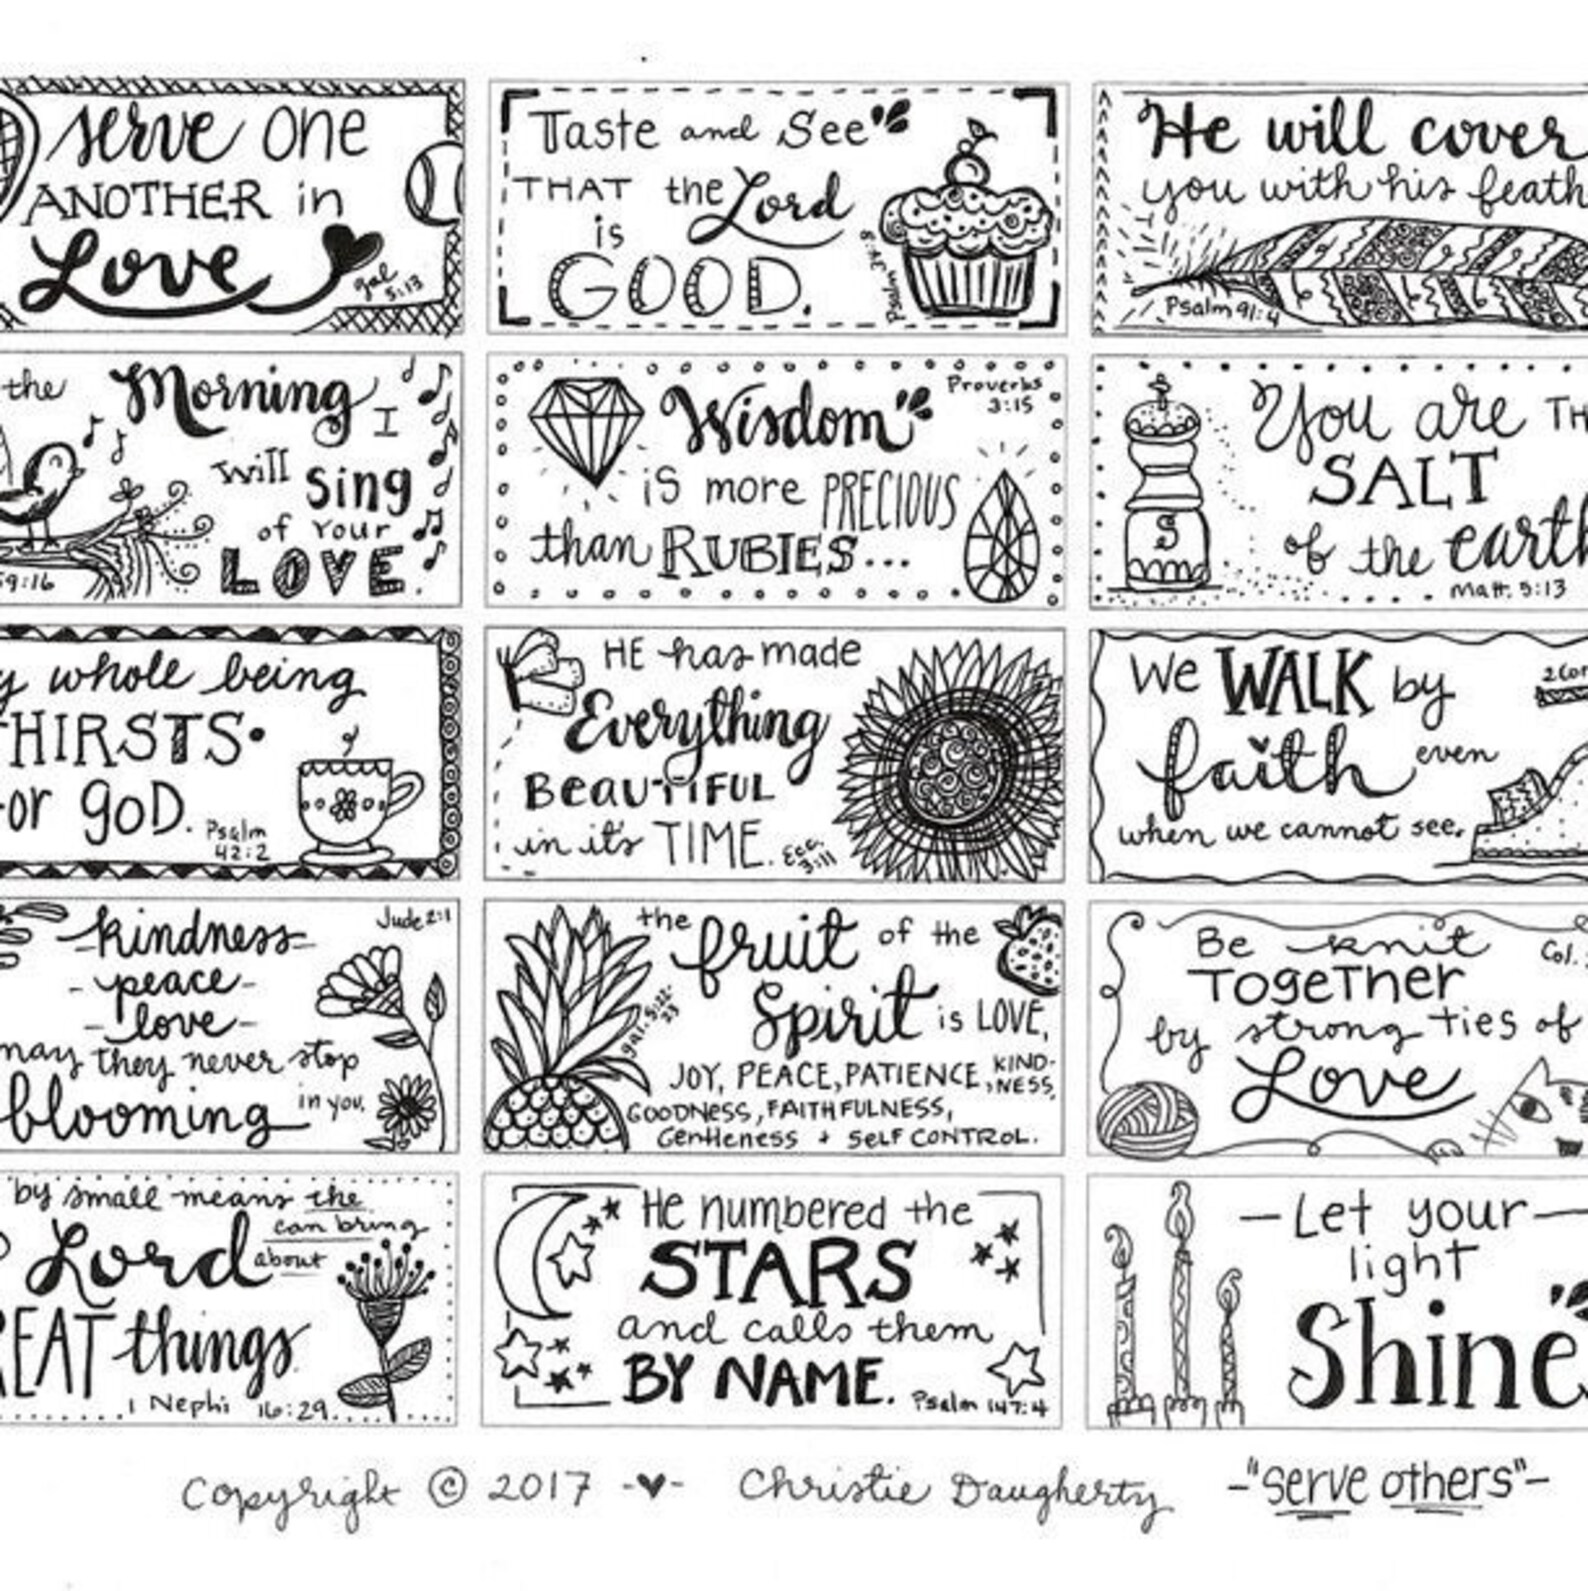 serve one
ANOTHER in
Love
gal
5:13
Taste and See
THAT the Lord
is
GOOD.
Psalm 34:8
He will cover
you with his feath
Psalm 91:4
the Morning I
will sing
of Your
LOVE.
59:16
Wisdom
Proverbs
3:15
is more PRECIOUS
than RUBIES...
You are TH
SALT
of the earth
Matt. 5:13
S
y whole being
THIRSTS
for goD.
Psalm
42:2
HE has made
Everything
BeauTIFUL
in it's TIME.
Ecc.
3:11
We WALK by
2 Cor
faith even
when we cannot see.
kindness
Jude 2:1
- peace -
- love -
may they never stop
blooming in you.
the fruit of the
Spirit is LOVE,
JOY, PEACE, PATIENCE, KIND-
NESS,
GOODNESS, FAITHFULNESS,
Gentleness + SELF CONTROL.
gal. 5:22-
23
Be knit
Col.
TOGETHER
by strong TIES of
Love
by small means the
Lord can bring
about
REAT things.
1 Nephi 16:29
He numbered the
STARS
and calls them
BY NAME.
Psalm 147:4
- Let your -
light
Shine
Copyright © 2017 -♥- Christie Daugherty -"serve others"-